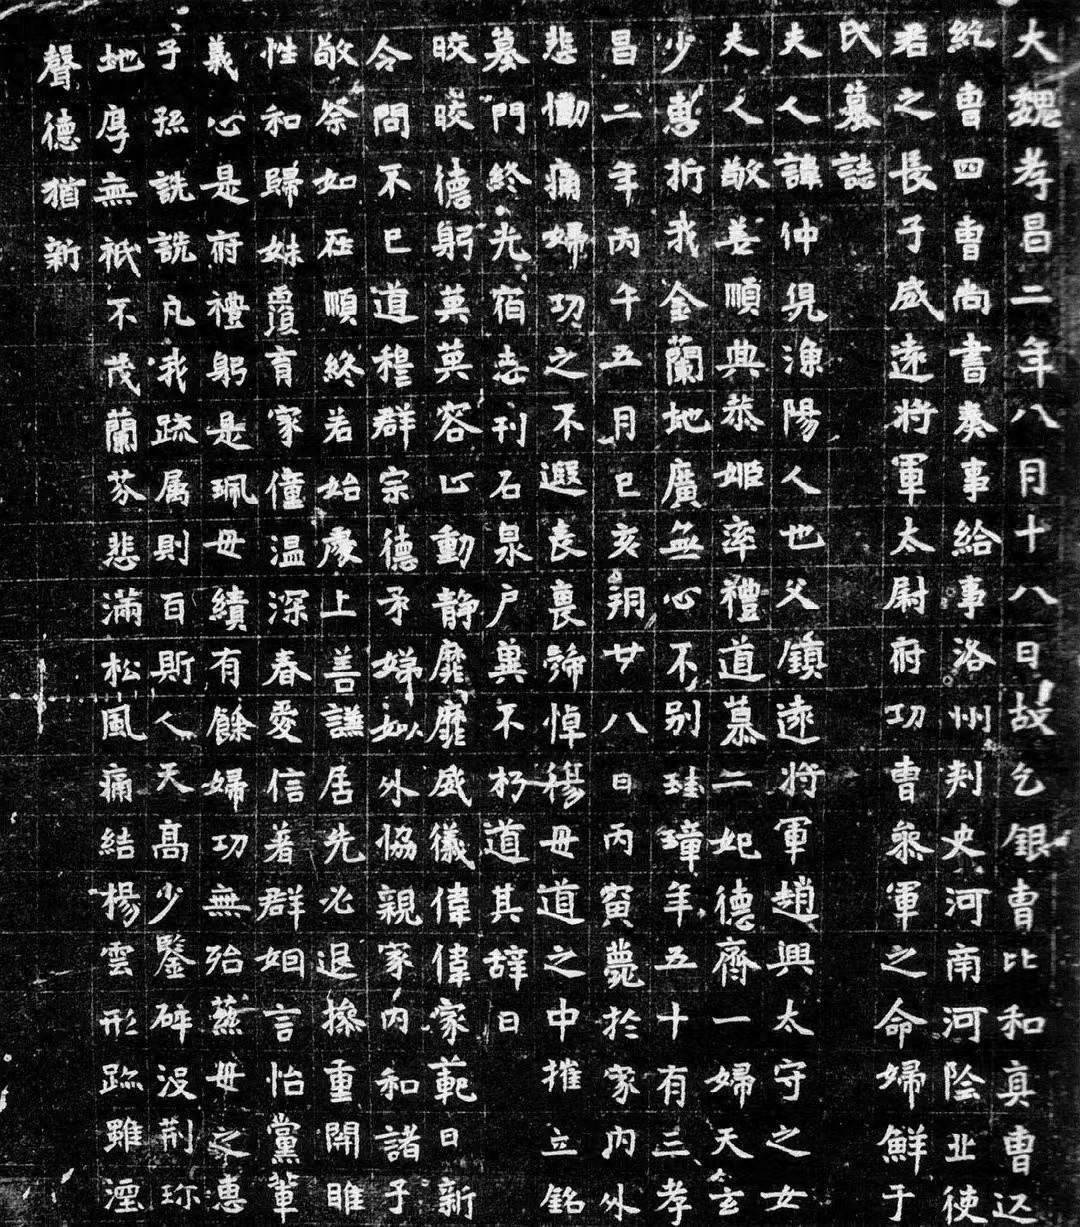 大魏孝昌二年八月十八日故乞銀曹比和真曹匹
紇曹四曹尚書奏事給事洛州刾史河南河陰丘使
君之長子威遠將軍太尉府功曹叅軍之命婦鮮于
氏墓誌
夫人諱仲兒漁陽人也父鎮遠將軍趙興太守之女
夫人敬善順典恭姬率禮道慕二妃德齊一婦天玄
少惠折我金蘭地廣無心不別珪璋年五十有三孝
昌二年丙午五月己亥朔廿八日丙寅薨於家內外
悲慟痛婦功之不遐哀喪啼悼穆母道之中摧立銘
墓門終光宿志刊石泉戶冀不朽道其辞曰
皎皎德躬英英容止動静靡靡威儀偉偉家範日新
令問不已道穆群宗德矛娣姒外協親家內和諸子
敬祭如在順終若始處上善謙居先必退操重關雎
性和歸妹覆育家僮温深春愛信著群姻言怡黨輩
義心是府禮躬是珮母績有餘婦功無殆蒸母之惠
子孫詵詵凡我疏属則百斯人天高少鑒碎没荆珎
地厚無祇不茂蘭芬悲滿松風痛結楊雲形跡雖湮
聲德猶新